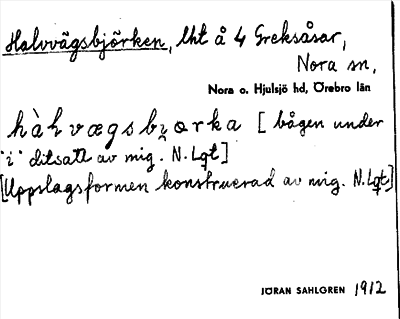 Halvvägsbjörken, lht å 4 Greksåsar,
Nora sn,
Nora o. Hjulsjö hd, Örebro län
hàlvægsbi̯ɔrka [bågen under
"i" ditsatt av mig. N. Lqt]
[Uppslagsformen konstruerad av mig. N. Lqt]
JÖRAN SAHLGREN 1912